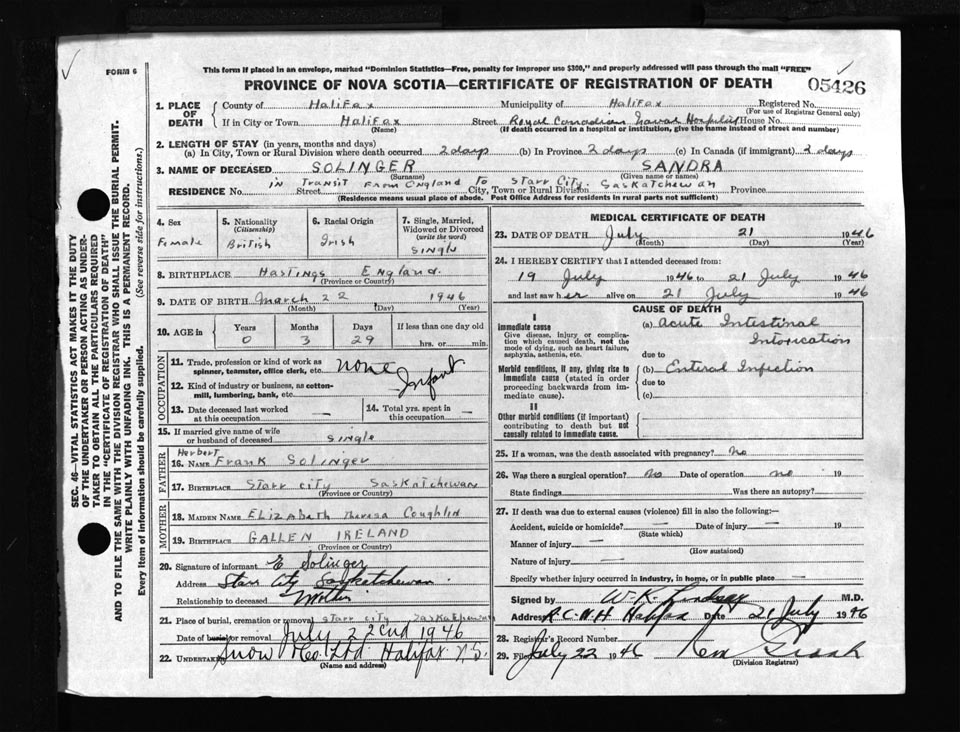 FORM 6
This form if placed in an envelope, marked "Dominion Statistics—Free, penalty for improper use $300," and properly addressed will pass through the mail "FREE"
PROVINCE OF NOVA SCOTIA—CERTIFICATE OF REGISTRATION OF DEATH
05426
1. PLACE OF DEATH
County of Halifax Municipality of Halifax Registered No.
(For use of Registrar General only)
If in City or Town Halifax Street Royal Canadian Naval Hospital House No.
(Name) (If death occurred in a hospital or institution, give the name instead of street and number)
2. LENGTH OF STAY (in years, months and days)
(a) In City, Town or Rural Division where death occurred 2 days (b) In Province 2 days (c) In Canada (if immigrant) 2 days
3. NAME OF DECEASED SOLINGER SANDRA
(Surname) (Given name or names)
RESIDENCE No. in Transit From England to Starr City, Saskatchewan
Street City, Town or Rural Division Province
(Residence means usual place of abode. Post Office Address for residents in rural parts not sufficient)
4. Sex
Female
5. Nationality
(Citizenship)
British
6. Racial Origin
Irish
7. Single, Married, Widowed or Divorced
(write the word)
Single
8. BIRTHPLACE Hastings England.
(Province or Country)
9. DATE OF BIRTH March 22 1946
(Month) (Day) (Year)
10. AGE in
Years Months Days If less than one day old
0 3 29 hrs. or min.
OCCUPATION
11. Trade, profession or kind of work as
spinner, teamster, office clerk, etc. none
12. Kind of industry or business, as cotton-
mill, lumbering, bank, etc. Infant
13. Date deceased last worked
at this occupation —
14. Total yrs. spent in
this occupation —
15. If married give name of wife
or husband of deceased single
FATHER
Herbert
16. NAME Frank Solinger
17. BIRTHPLACE Starr city Saskatchewan
(Province or Country)
MOTHER
18. MAIDEN NAME Elizabeth Theresa Coughlin
19. BIRTHPLACE GALLEN IRELAND
(Province or Country)
20. Signature of informant E Solinger
Address Starr City Saskatchewan.
Relationship to deceased Mother
21. Place of burial, cremation or removal Starr city Saskatchewan
Date of burial or removal July 22nd 1946
22. Undertaker Snow & Co. Ltd. Halifax N.S.
(Name and address)
MEDICAL CERTIFICATE OF DEATH
23. DATE OF DEATH July 21 1946
(Month) (Day) (Year)
24. I HEREBY CERTIFY that I attended deceased from:
19 July 1946 to 21 July 1946
and last saw her alive on 21 July 1946
CAUSE OF DEATH
I
Immediate cause
Give disease, injury or complica-
tion which caused death, not the
mode of dying, such as heart failure,
asphyxia, asthenia, etc.
(a) Acute Intestinal
Intoxication
due to
Morbid conditions, if any, giving rise to
immediate cause (stated in order
proceeding backwards from im-
mediate cause).
(b) Enteral Infection
due to
(c)
II
Other morbid conditions (if important)
contributing to death but not
causally related to immediate cause.
25. If a woman, was the death associated with pregnancy? No
26. Was there a surgical operation? No Date of operation no 19
State findings Was there an autopsy?
27. If death was due to external causes (violence) fill in also the following:—
Accident, suicide or homicide? — Date of injury — 19
(State which)
Manner of injury —
(How sustained)
Nature of injury —
Specify whether injury occurred in industry, in home, or in public place —
Signed by W. K. Lindsay M.D.
Address R.C.N.H Halifax Date 21 July 1946
28. Registrar's Record Number
29. Filed July 22 1946
(Division Registrar)
SEC. 46—VITAL STATISTICS ACT MAKES IT THE DUTY
OF THE UNDERTAKER OR PERSON ACTING AS UNDER-
TAKER TO OBTAIN ALL THE PARTICULARS REQUIRED
IN THE "CERTIFICATE OF REGISTRATION OF DEATH"
AND TO FILE THE SAME WITH THE DIVISION REGISTRAR WHO SHALL ISSUE THE BURIAL PERMIT.
WRITE PLAINLY WITH UNFADING INK. THIS IS A PERMANENT RECORD.
Every item of information should be carefully supplied. (See reverse side for instructions.)